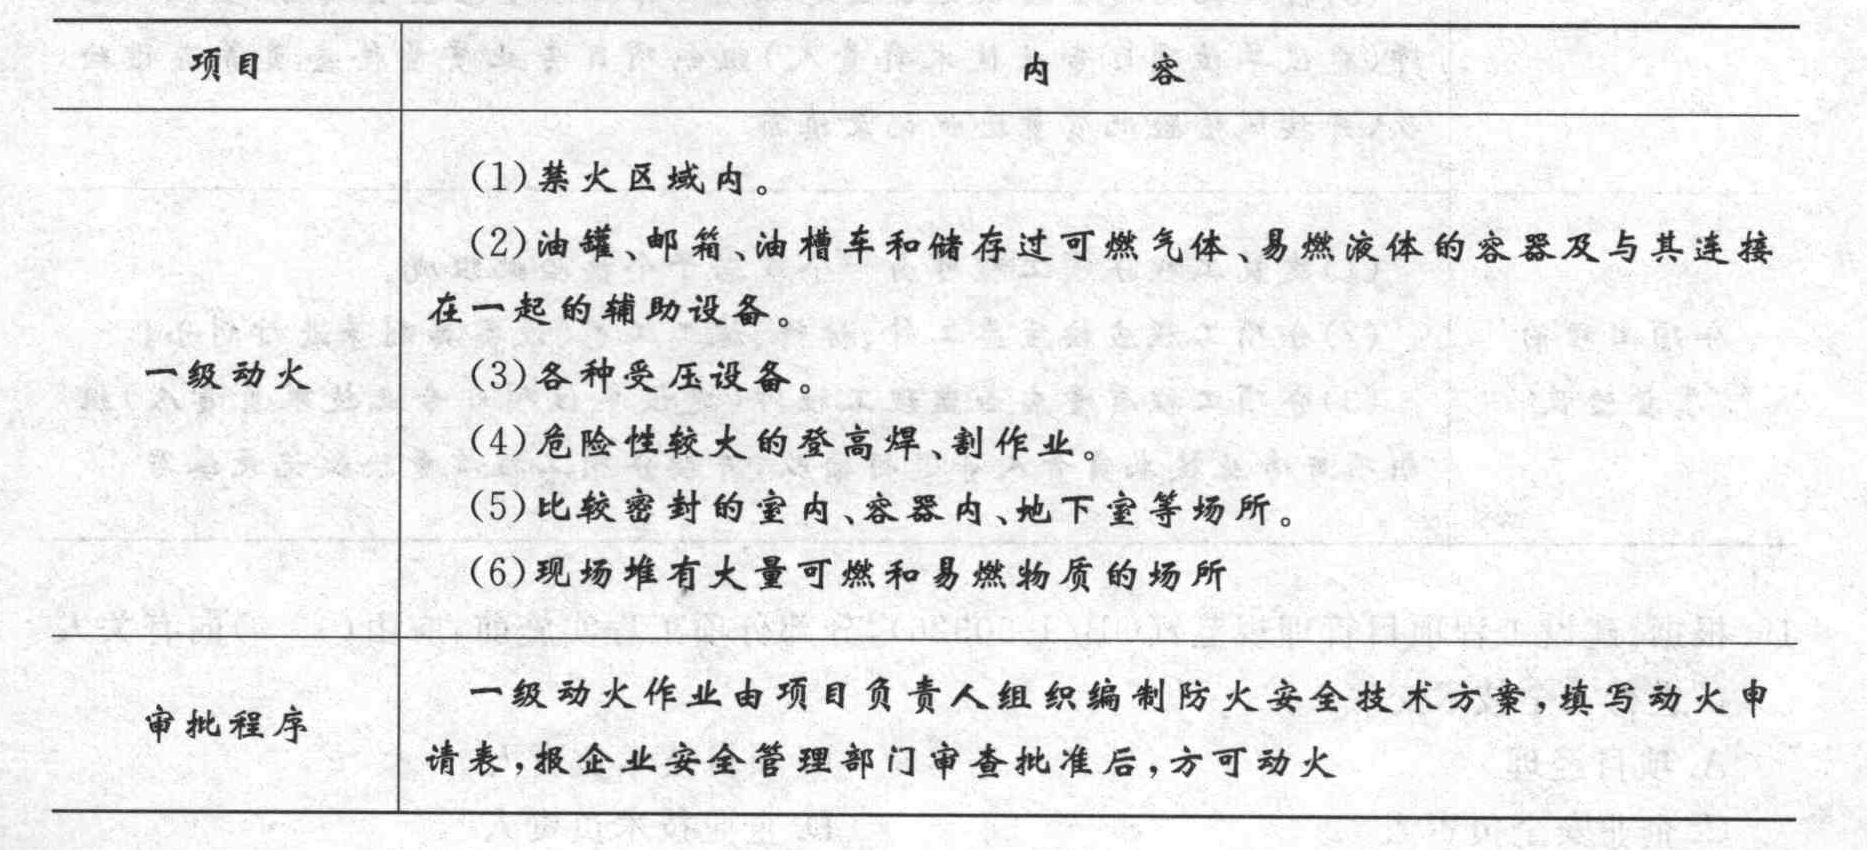 项目 内 容
一级动火
(1)禁火区域内。
(2)油罐、邮箱、油槽车和储存过可燃气体、易燃液体的容器及与其连接
在一起的辅助设备。
(3)各种受压设备。
(4)危险性较大的登高焊、割作业。
(5)比较密封的室内、容器内、地下室等场所。
(6)现场堆有大量可燃和易燃物质的场所
审批程序
一级动火作业由项目负责人组织编制防火安全技术方案,填写动火申
请表,报企业安全管理部门审查批准后,方可动火